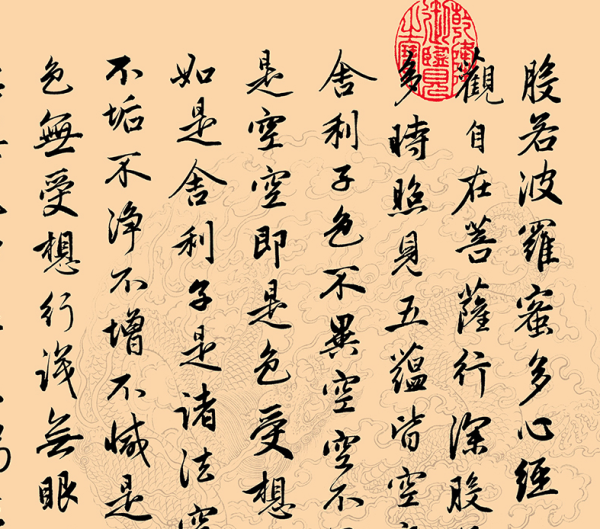 乾隆御覽之寶
般若波羅蜜多心經
觀自在菩薩行深般
多時照見五蘊皆空
舍利子色不異空空不
是空空即是色受想
如是舍利子是諸法空
不垢不淨不增不減是
色無受想行識無眼